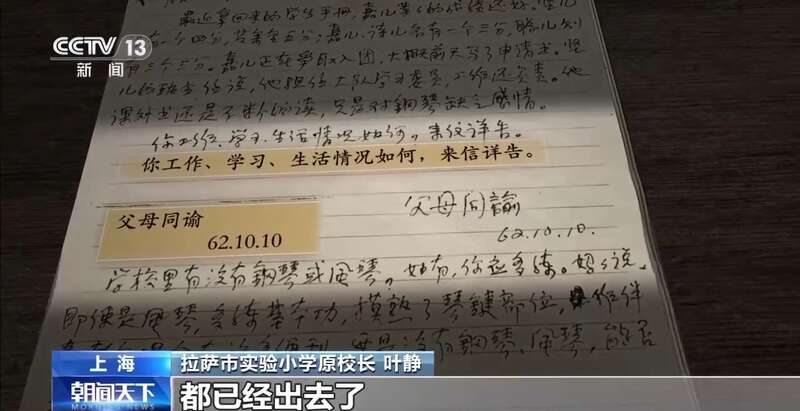 CCTV 13
新闻
最近拿回来的学生手册，嘉儿等的成绩还好。坚儿
有一个四分，其余是五分；嘉儿、
有三个三分。嘉儿正在争取入团，大概前天写了申请书。坚
他担任大队学习委员，工作还负责。他
课外书还是不断的读，只是对钢琴缺乏感情。
你工作、学习、生活情况如何，来信详告。
你工作、学习、生活情况如何，来信详告。
父母同谕
62.10.10
父母同諭
62.10.10.
学校里有没有鋼琴或风琴。如有，你应多练。妈妈说，
即使是风琴，多练基本功，摸熟了琴键部位，
没有鋼琴、风琴，能否
上海 拉萨市实验小学原校长 叶静
朝闻天下
MORNING NEWS
都已经出去了